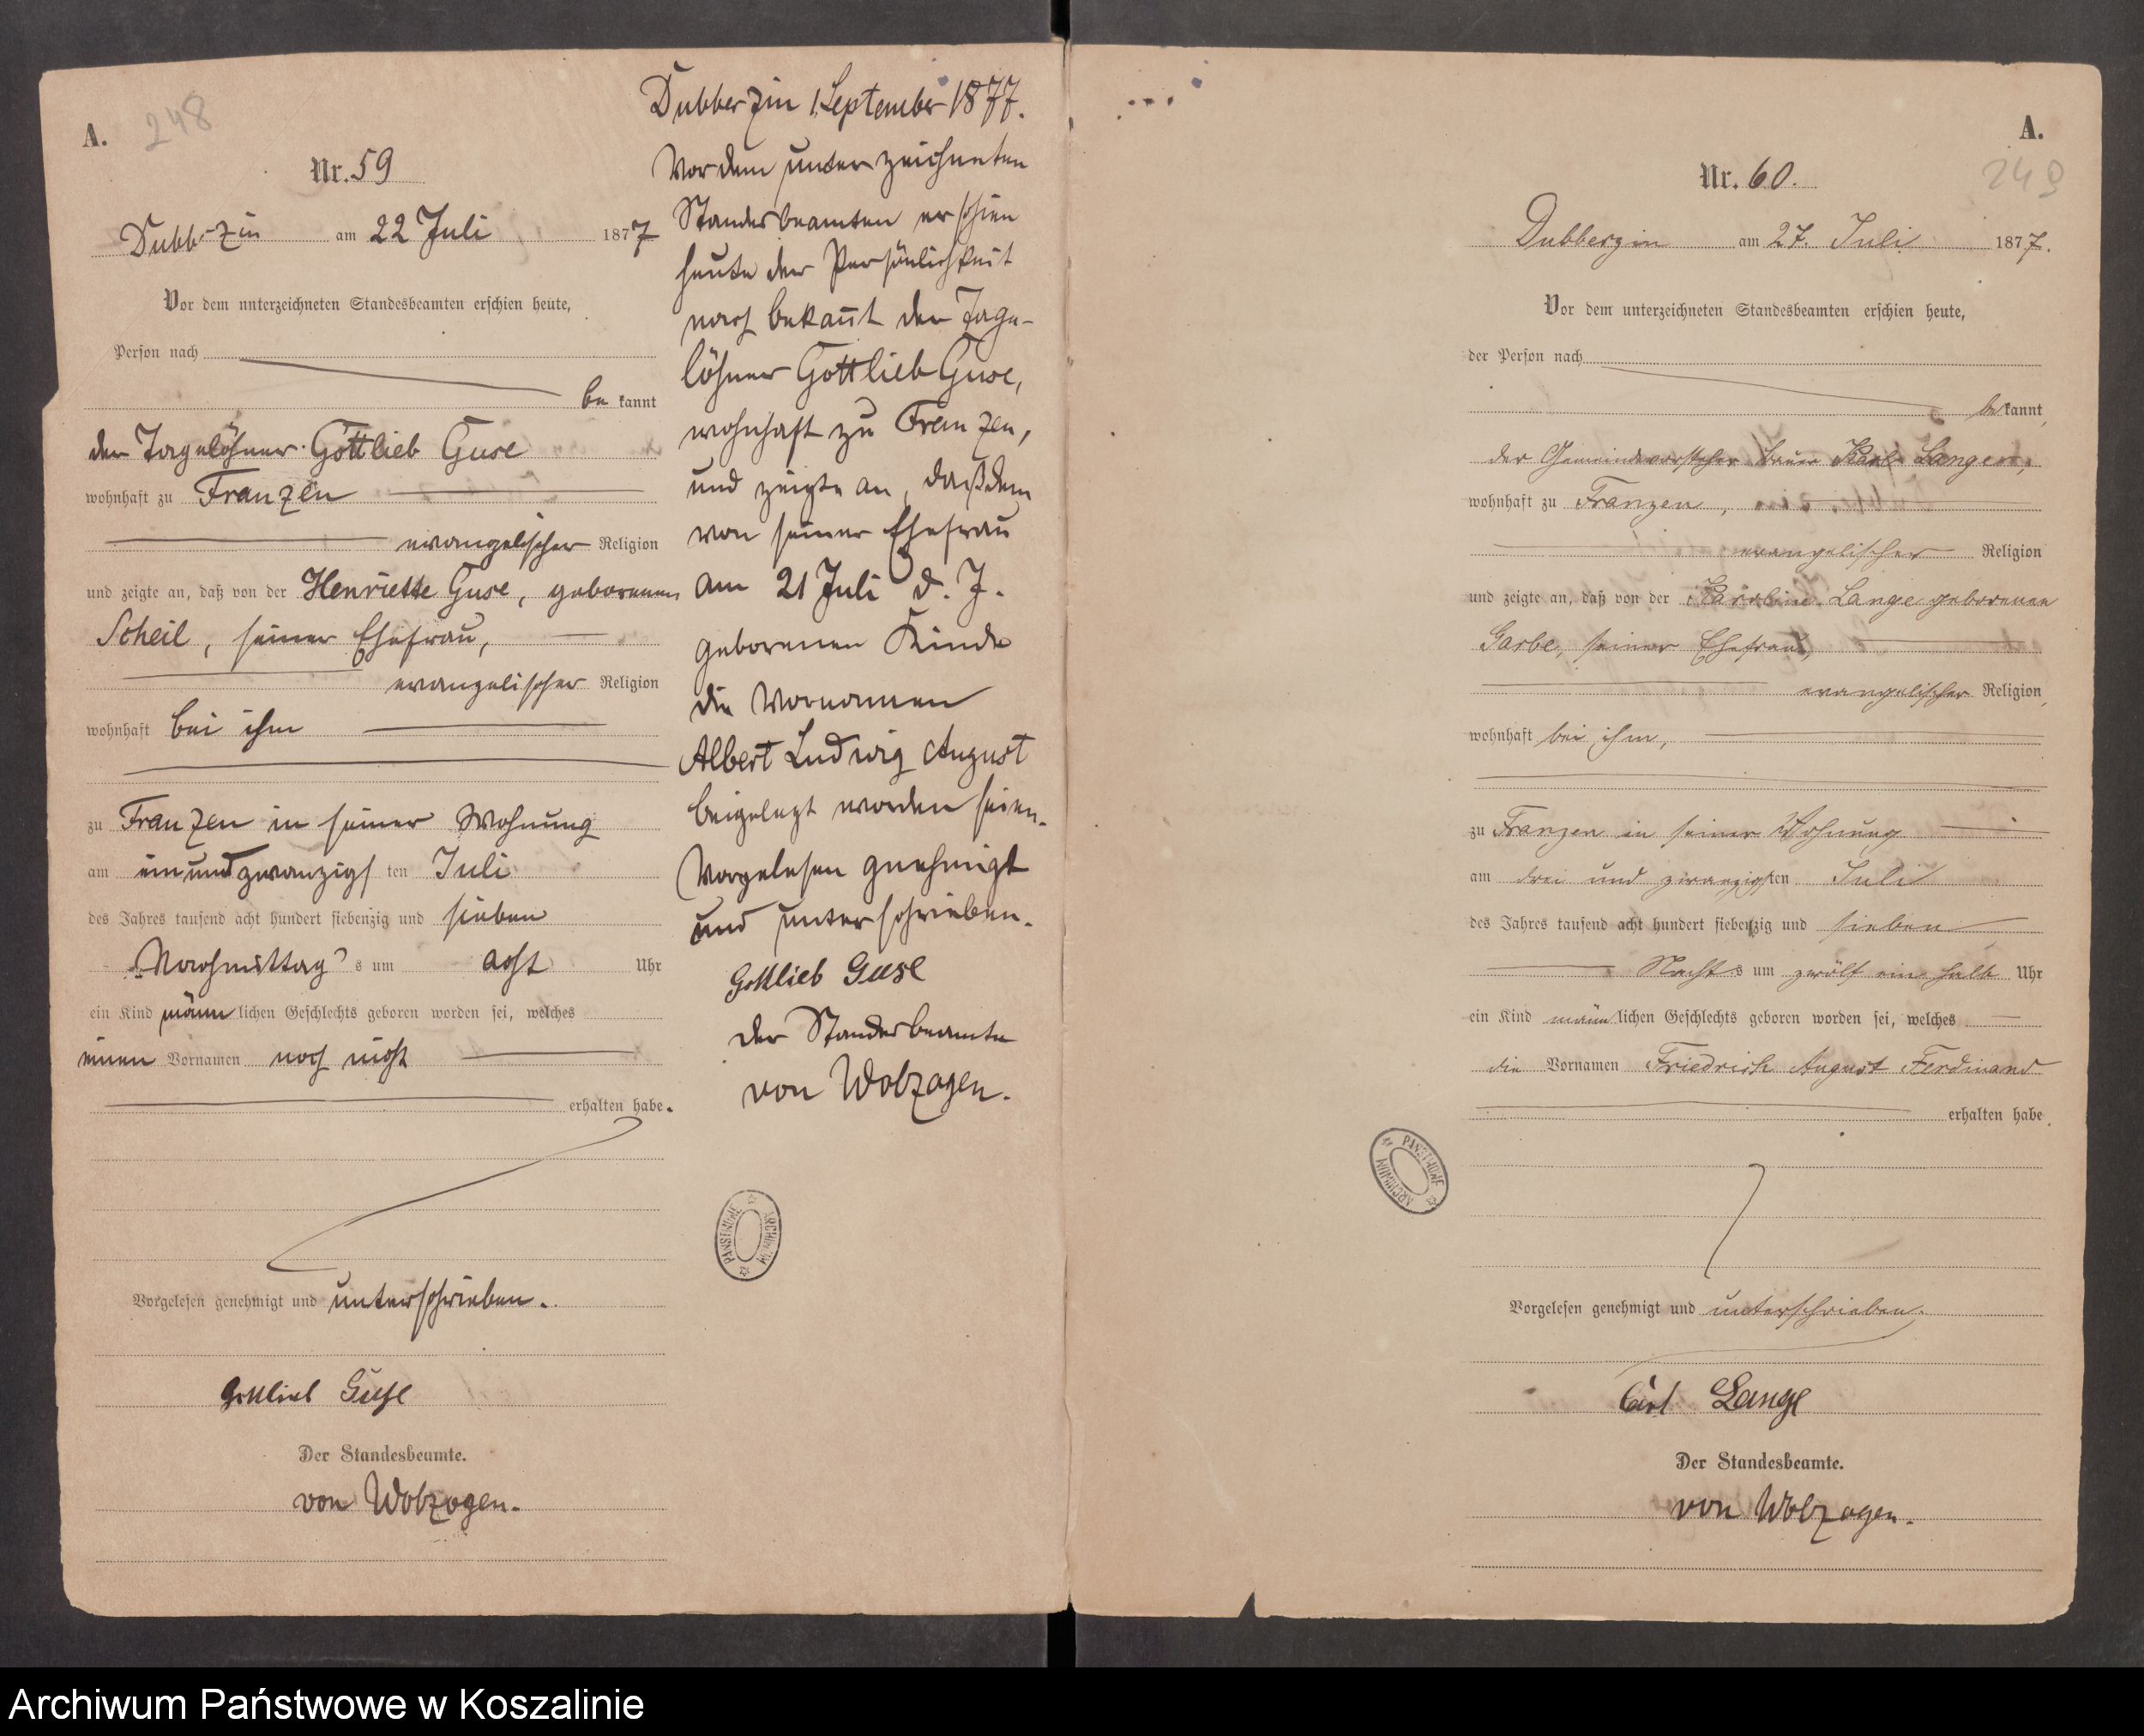 A.
248
Nr. 59
Dubberzin am 22 Juli 1877
Vor dem unterzeichneten Standesbeamten erschien heute,
Person nach
be kannt
der Tagelöhner Gottlieb Guse
wohnhaft zu Franzen
evangelischer Religion
und zeigte an, daß von der Henriette Guse, geborenen
Scheil, seiner Ehefrau,
evangelischer Religion
wohnhaft bei ihm
zu Franzen in seiner Wohnung
am einundzwanzigs ten Juli
des Jahres tausend acht hundert siebenzig und sieben
Nachmittag s um acht Uhr
ein Kind männ lichen Geschlechts geboren worden sei, welches
einen Vornamen noch nicht
erhalten habe.
Vorgelesen genehmigt und unterschrieben.
Gottlieb Guse
Der Standesbeamte.
von Wolzogen.
Dubberzin 1. September 1877.
Vor dem unterzeichneten
Standesbeamten erschien
heute der Persönlichkeit
nach bekannt der Tage-
löhner Gottlieb Guse,
wohnhaft zu Franzen,
und zeigte an, daß dem
von seiner Ehefrau
am 21 Juli d. J.
geborenen Kinde
die Vornamen
Albert Ludwig August
beigelegt worden seien.
Vorgelesen genehmigt
und unterschrieben.
Gottlieb Guse
Der Standesbeamte
von Wolzogen.
ARCHIWUM PAŃSTWOWE
A.
249
Nr. 60.
Dubberzin am 27. Juli 1877.
Vor dem unterzeichneten Standesbeamten erschien heute,
der Person nach
be kannt,
der Gemeindevorsteher Bauer Karl Lange,
wohnhaft zu Franzen,
evangelischer Religion
und zeigte an, daß von der Karoline Lange geborenen
Garbe, seiner Ehefrau,
evangelischer Religion,
wohnhaft bei ihm,
zu Franzen in seiner Wohnung
am drei und zwanzigsten Juli
des Jahres tausend acht hundert siebenzig und sieben
Nachts um zwölf ein halb Uhr
ein Kind männ lichen Geschlechts geboren worden sei, welches
die Vornamen Friedrich August Ferdinand
erhalten habe.
Vorgelesen genehmigt und unterschrieben.
Carl Lange
Der Standesbeamte.
von Wolzogen.
ARCHIWUM PAŃSTWOWE
Archiwum Państwowe w Koszalinie